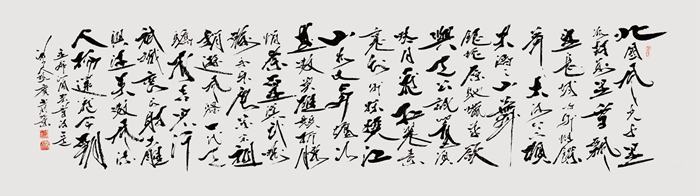 北國風光千里
冰封萬里雪飄
望長城内外惟餘
莽莽大河上下頓
失滔滔山舞
銀蛇原馳蠟象欲
與天公試比高須
晴日看紅裝素
裹分外妖嬈江
山如此多嬌引
無數英雄競折腰
惜秦皇漢武略
輸文采唐宗宋祖
稍遜風騷一代天
驕成吉思汗只
識彎弓射大雕
俱往矣數風流
人物還看今朝